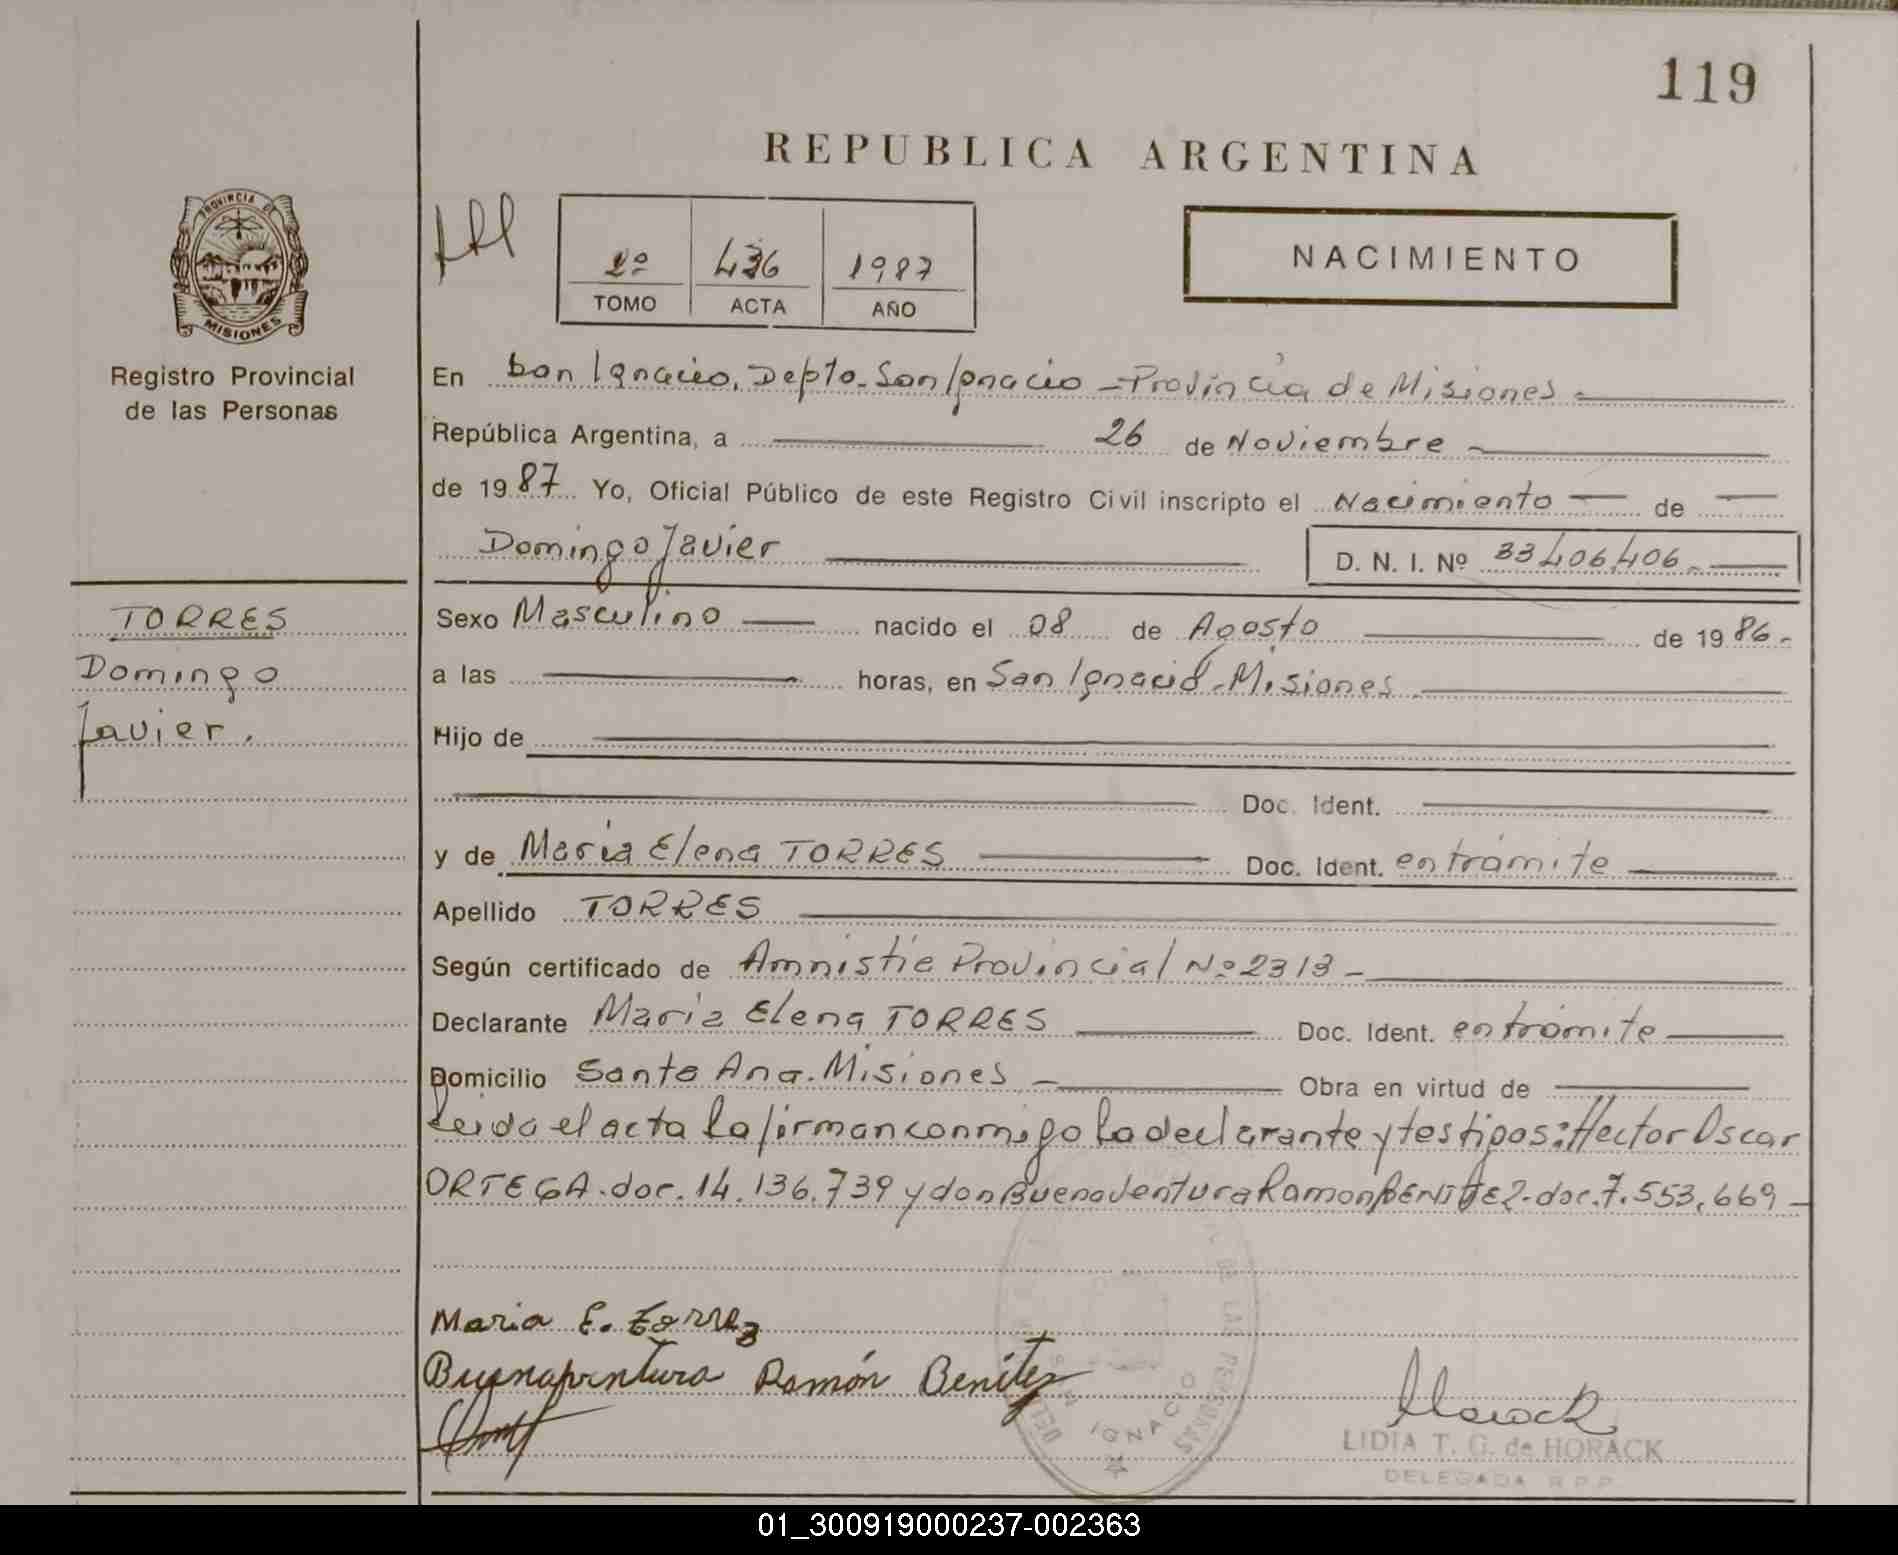 119
REPUBLICA ARGENTINA
PROVINCIA DE
MISIONES
Registro Provincial
de las Personas
2º 436 1987
TOMO ACTA AÑO
NACIMIENTO
En San Ignacio. Depto. San Ignacio - Provincia de Misiones
República Argentina, a 26 de Noviembre
de 1987 Yo, Oficial Público de este Registro Civil inscripto el Nacimiento de
Domingo Javier D. N. I. Nº 33406.406
TORRES
Domingo
Javier.
Sexo Masculino nacido el 08 de Agosto de 1986.
a las horas, en San Ignacio - Misiones
Hijo de
Doc. Ident.
y de Maria Elena TORRES Doc. Ident. en trámite
Apellido TORRES
Según certificado de Amnistie Provincial Nº 2313 -
Declarante Maria Elena TORRES Doc. Ident. en trámite
Domicilio Santa Ana. Misiones - Obra en virtud de
Leida el acta la firman conmigo la declarante y testigos: Hector Oscar
ORTEGA. doc. 14.136.739 y don Buenaventura Ramon BENITEZ. doc. 7.553.669 -
Maria E. Torres
Buenaventura Ramón Benítez
Horack
LIDIA T. G. de HORACK
DELEGADA R.P.P.
DE LAS PERSONAS
IGNACIO
01_300919000237-002363